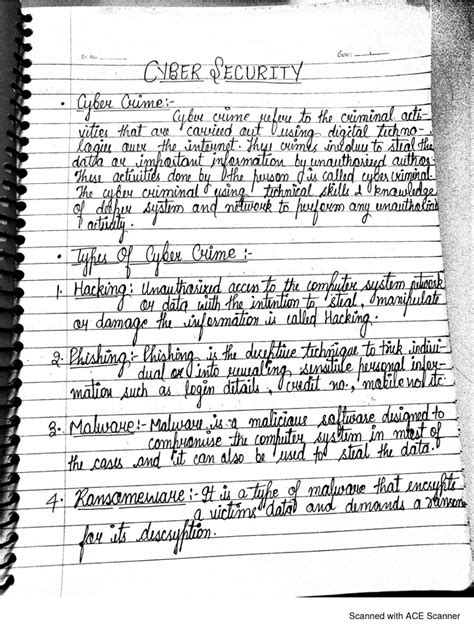 Sr. No.
Date:
CYBER SECURITY
• Cyber Crime:-
Cyber crime refers to the criminal acti-
vities that are carried out using digital techno-
logies over the internet. These crimes involves to steal the
data or important information by unauthorized author
These activities done by the person is called cyber criminal.
The cyber criminal using technical skills & knowledge
of deeper system and network to perform any unauthorized
activity.
• Types Of Cyber Crime:-
1. Hacking: Unauthorized access to the computer system network
or data with the intention to steal, manipulate
or damage the information is called Hacking.
2. Phishing:- Phishing is the deceptive technique to trick indivi-
dual or into revealing sensitive personal infor-
mation such as login details, credit no., mobile no. etc.
3. Malware:- Malware is a malicious software designed to
compromise the computer system in most of
the cases and it can also be used to steal the data.
4. Ransomeware:- It is a type of malware that encrypts
a victims data and demands a ransom
for its descryption.
Scanned with ACE Scanner